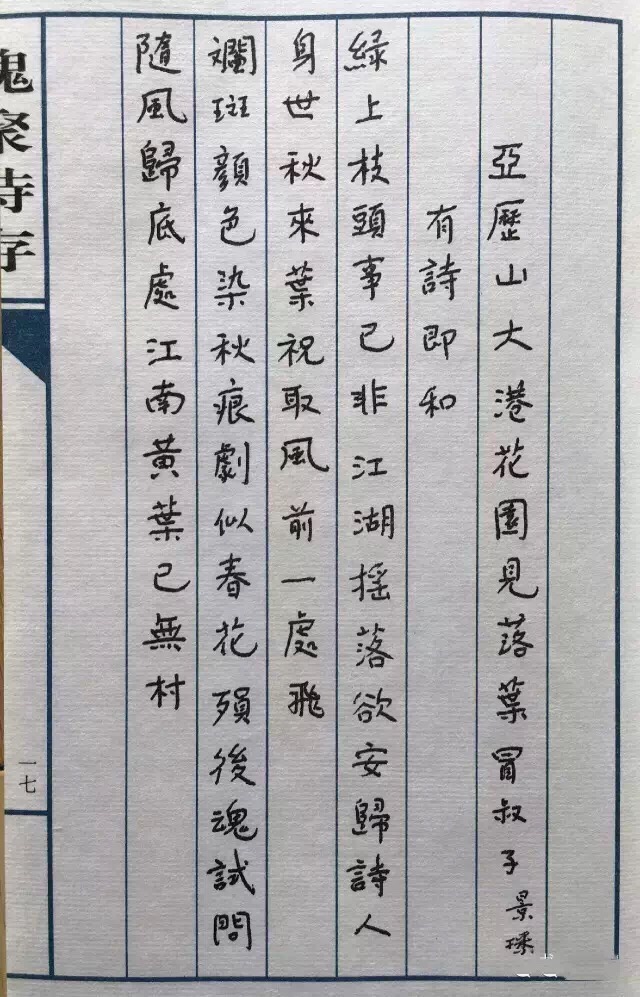 亞歷山大港花園見落葉冒叔子景璠
有詩即和
綠上枝頭事已非江湖搖落欲安歸詩人
身世秋來葉祝取風前一處飛
斕斑顏色染秋痕劇似春花殞後魂試問
隨風歸底處江南黃葉已無村
槐聚詩存
一七